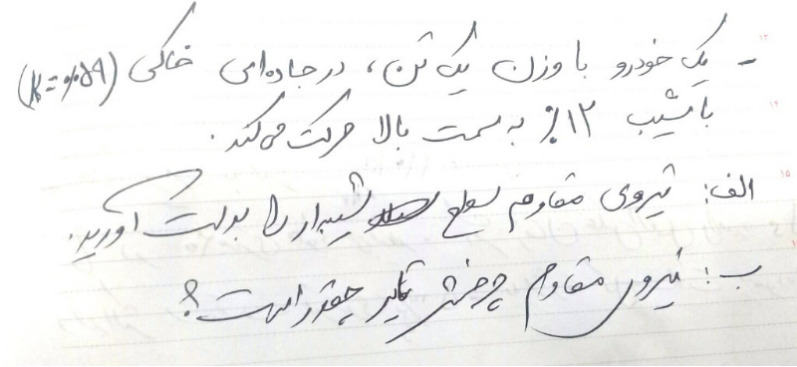 - یک خودرو با وزن یک تن، در جاده‌ای خاکی (K=%59)
با شیب ۱۲% به سمت بالا حرکت می‌کند.
الف: نیروی مقاوم سطح شیبدار را بدست آورید.
ب: نیروی مقاوم چرخش تایر چقدر است؟